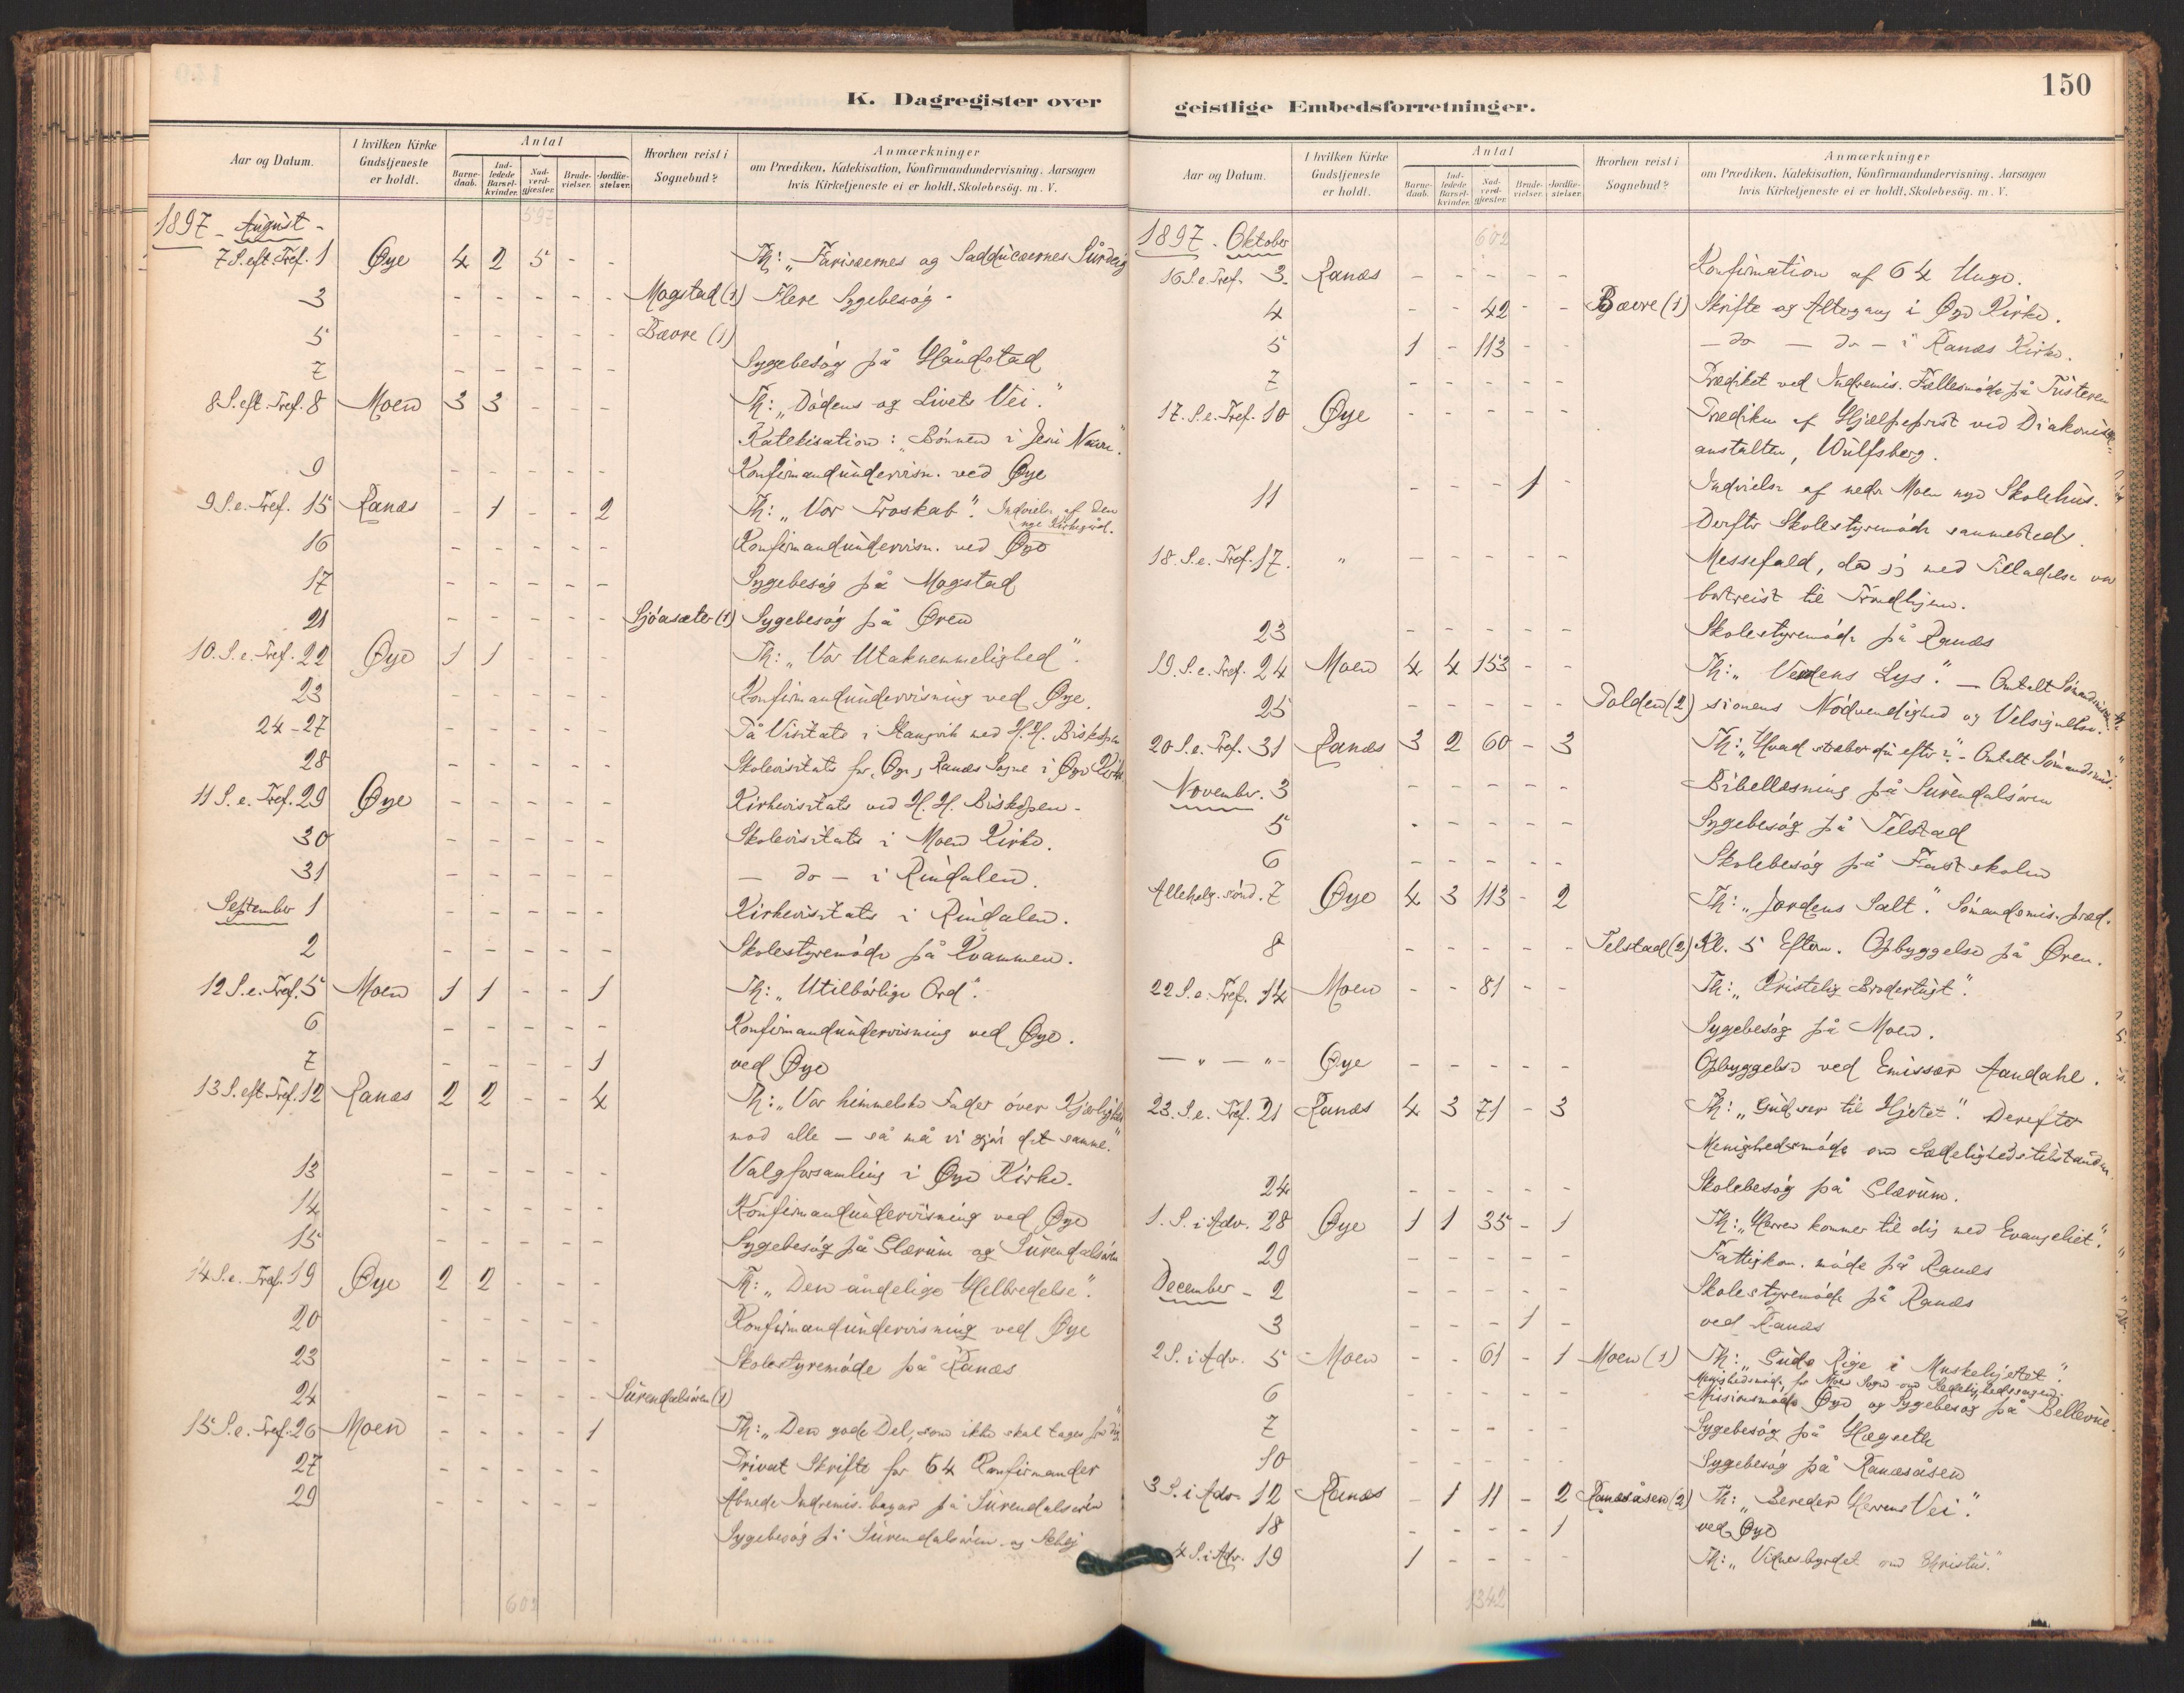 K. Dagregister over
Aar og Datum. | I hvilken Kirke Gudstjeneste er holdt. | Antal | Barnedaab. | Indledede Barselkvinder. | Nadverdgjæster. | Brudevielser. | Jordfæstelser. | Hvorhen reist i Sognebud? | Anmærkninger om Prædiken, Katekisation, Konfirmandundervisning, Aarsagen hvis Kirketjeneste ei er holdt, Skolebesög. m. V.
597
1897 - August -
7 S. eft. Tref. 1 Øye 4 2 5 - - Th: „Farisæernes og Sadducæernes Surdeig
3 - - - - - Mogstad (1) Flere Sygebesøg -
5 - - - - - Bævre (1)
7 - - - - - Sygebesøg på Håndstad
8 S. eft. Tref. 8 Moen 3 3 - - - Th: „Dødens og Livets Vei".
Katekisation: „Bønnen i Jesu Navn".
9 - - - - - Konfirmandundervisn. ved Øye
9 S. e. Tref. 15 Ranæs - 1 - - 2 Th: „Vor Troskab". Indvielse af den
nye Kirkegård.
16 - - - - - Konfirmandundervisn. ved Øye
17 - - - - - Sygebesøg på Mogstad
21 - - - - - Sjøasæter (1) Sygebesøg på Øren
10. S. e. Tref. 22 Øye 1 1 - - - Th: „Vor Utaknemmelighed".
23 - - - - - Konfirmandundervisning ved Øye.
24-27 - - - - - På Visitats i Stangvik med H.H. Biskopen
28 - - - - - Skolevisitats for Øye og Ranæs Sogne i Øye Kirke
11 S. e. Tref. 29 Øye - - - - - Kirkevisitats ved H.H. Biskopen -
30 - - - - - Skolevisitats i Moen Kirke.
31 - - - - - — do — i Rindalen.
September 1 - - - - - Kirkevisitats i Rindalen.
2 - - - - - Skolestyremøde på Kvammen.
12 S. e. Tref. 5 Moen 1 1 - - 1 Th: „Utilbørlige Ord".
6 - - - - - Konfirmandundervisning ved Øye.
7 - - - - 1 ved Øye
13 S. eft. Tref. 12 Ranæs 2 2 - - 4 Th: „Vor himmelske Fader øver Kjærlighed
mod alle — så må vi gjøre det samme."
13 - - - - - Valgforsamling i Øye Kirke.
14 - - - - - Konfirmandundervisning ved Øye
15 - - - - - Sygebesøg på Glærum og Surendalsøren
14 S. e. Tref. 19 Øye 2 2 - - - Th: „Den åndelige Helbredelse".
20 - - - - - Konfirmandundervisning ved Øye
23 - - - - - Skolestyremøde på Ranæs
24 - - - - - Surendalsøren (1)
15 S. e. Tref. 26 Moen - - - - 1 Th: „Den gode Del, som ikke skal tages fra dig"
27 - - - - - Privat Skrifte for 64 Konfirmander
29 - - - - - Åbnede Indremis. bazar på Surendalsøren
Sygebesøg på Surendalsøren og
602
150
geistlige Embedsforretninger.
Aar og Datum. | I hvilken Kirke Gudstjeneste er holdt. | Antal | Barnedaab. | Indledede Barselkvinder. | Nadverdgjæster. | Brudevielser. | Jordfæstelser. | Hvorhen reist i Sognebud? | Anmærkninger om Prædiken, Katekisation, Konfirmandundervisning, Aarsagen hvis Kirketjeneste ei er holdt, Skolebesög. m. V.
1897 - Oktober 602
16 S. e. Tref. 3. Ranæs - - - - - Konfirmation af 64 Unge.
4 - - 42 - - Bævre (1) Skrifte og Altergang i Øye Kirke.
5 1 - 113 - - — do — do — i Ranæs Kirke.
7 - - - - - Prædiket ved Indremis. Fællesmøde på Tusteren
17. S. e. Tref. 10 Øye - - - - - Prædiken af Hjælpeprest ved Diakonisse-
anstalten, Wulfsberg.
11 - - - 1 - Indvielse af nedr Moen nye Skolehus.
Derefter Skolestyremøde sammesteds.
18. S. e. Tref. 17. " - - - - - Messefald, da jeg med Tilladelse var
bortreist til Trondhjem.
23 - - - - - Skolestyremøde på Ranæs
19. S. e. Tref. 24 Moen 4 4 153 - - Th: „Verdens Lys". — Omtalt Sømandsmis-
25 - - - - - Polden (2) sionens Nødvendighed og Velsignelse.
20 S. e. Tref. 31 Ranæs 3 2 60 - 3 Th: „Hvad stræber du efter?" - Omtalt Sømandsmis.
November. 3 - - - - - Bibellæsning på Surendalsøren
5 - - - - - Sygebesøg på Telstad
6 - - - - - Skolebesøg på Fastskolen
Allehelg. sønd. 7 Øye 4 3 113 - 2 Th: „Jordens Salt". Sømandsmis. præd.
8 - - - - - Telstad (2) Kl. 5 Efterm. Opbyggelse på Øren.
22 S. e. Tref. 14 Moen - - 81 - - Th: „Kristelig Brodertugt".
Sygebesøg på Moen.
— " — " - Øye - - - - - Opbyggelse ved Emissær Aandahl.
23. S. e. Tref. 21 Ranæs 4 3 71 - 3 Th: „Gud ser til Hjertet". Derefter
Menighedsmøde om Sædelighedstilstanden.
24 - - - - - Skolebesøg på Glærum.
1. S. i Adv. 28 Øye 1 1 35 - 1 Th: „Herren kommer til dig med Evangeliet".
29 - - - - - Fattigkom. møde på Ranæs
December - 2 - - - - - Skolestyremøde på Ranæs
3 - - - 1 - ved Ranæs
2 S. i Adv. 5 Moen - - 61 - 1 Moen (1) Th: „Guds Rige i Menskehjertet".
Menighedsmøde for Moen Sogn om Sædelighedssagen.
6 - - - - - Missionsmøde Øye og Sygebesøg på Bellevue.
7 - - - - - Sygebesøg på Hægseth
10 - - - - - Sygebesøg på Ranæsåsen
3 S. i Adv. 12 Ranæs - 1 11 - 2 Ranæsåsen (2) Th: „Bereder Herrens Vei".
18 - - - - 1 ved Øye
4 S. i Adv. 19 1 - - - - Th: „Vidnesbyrdet om Christus."
1342